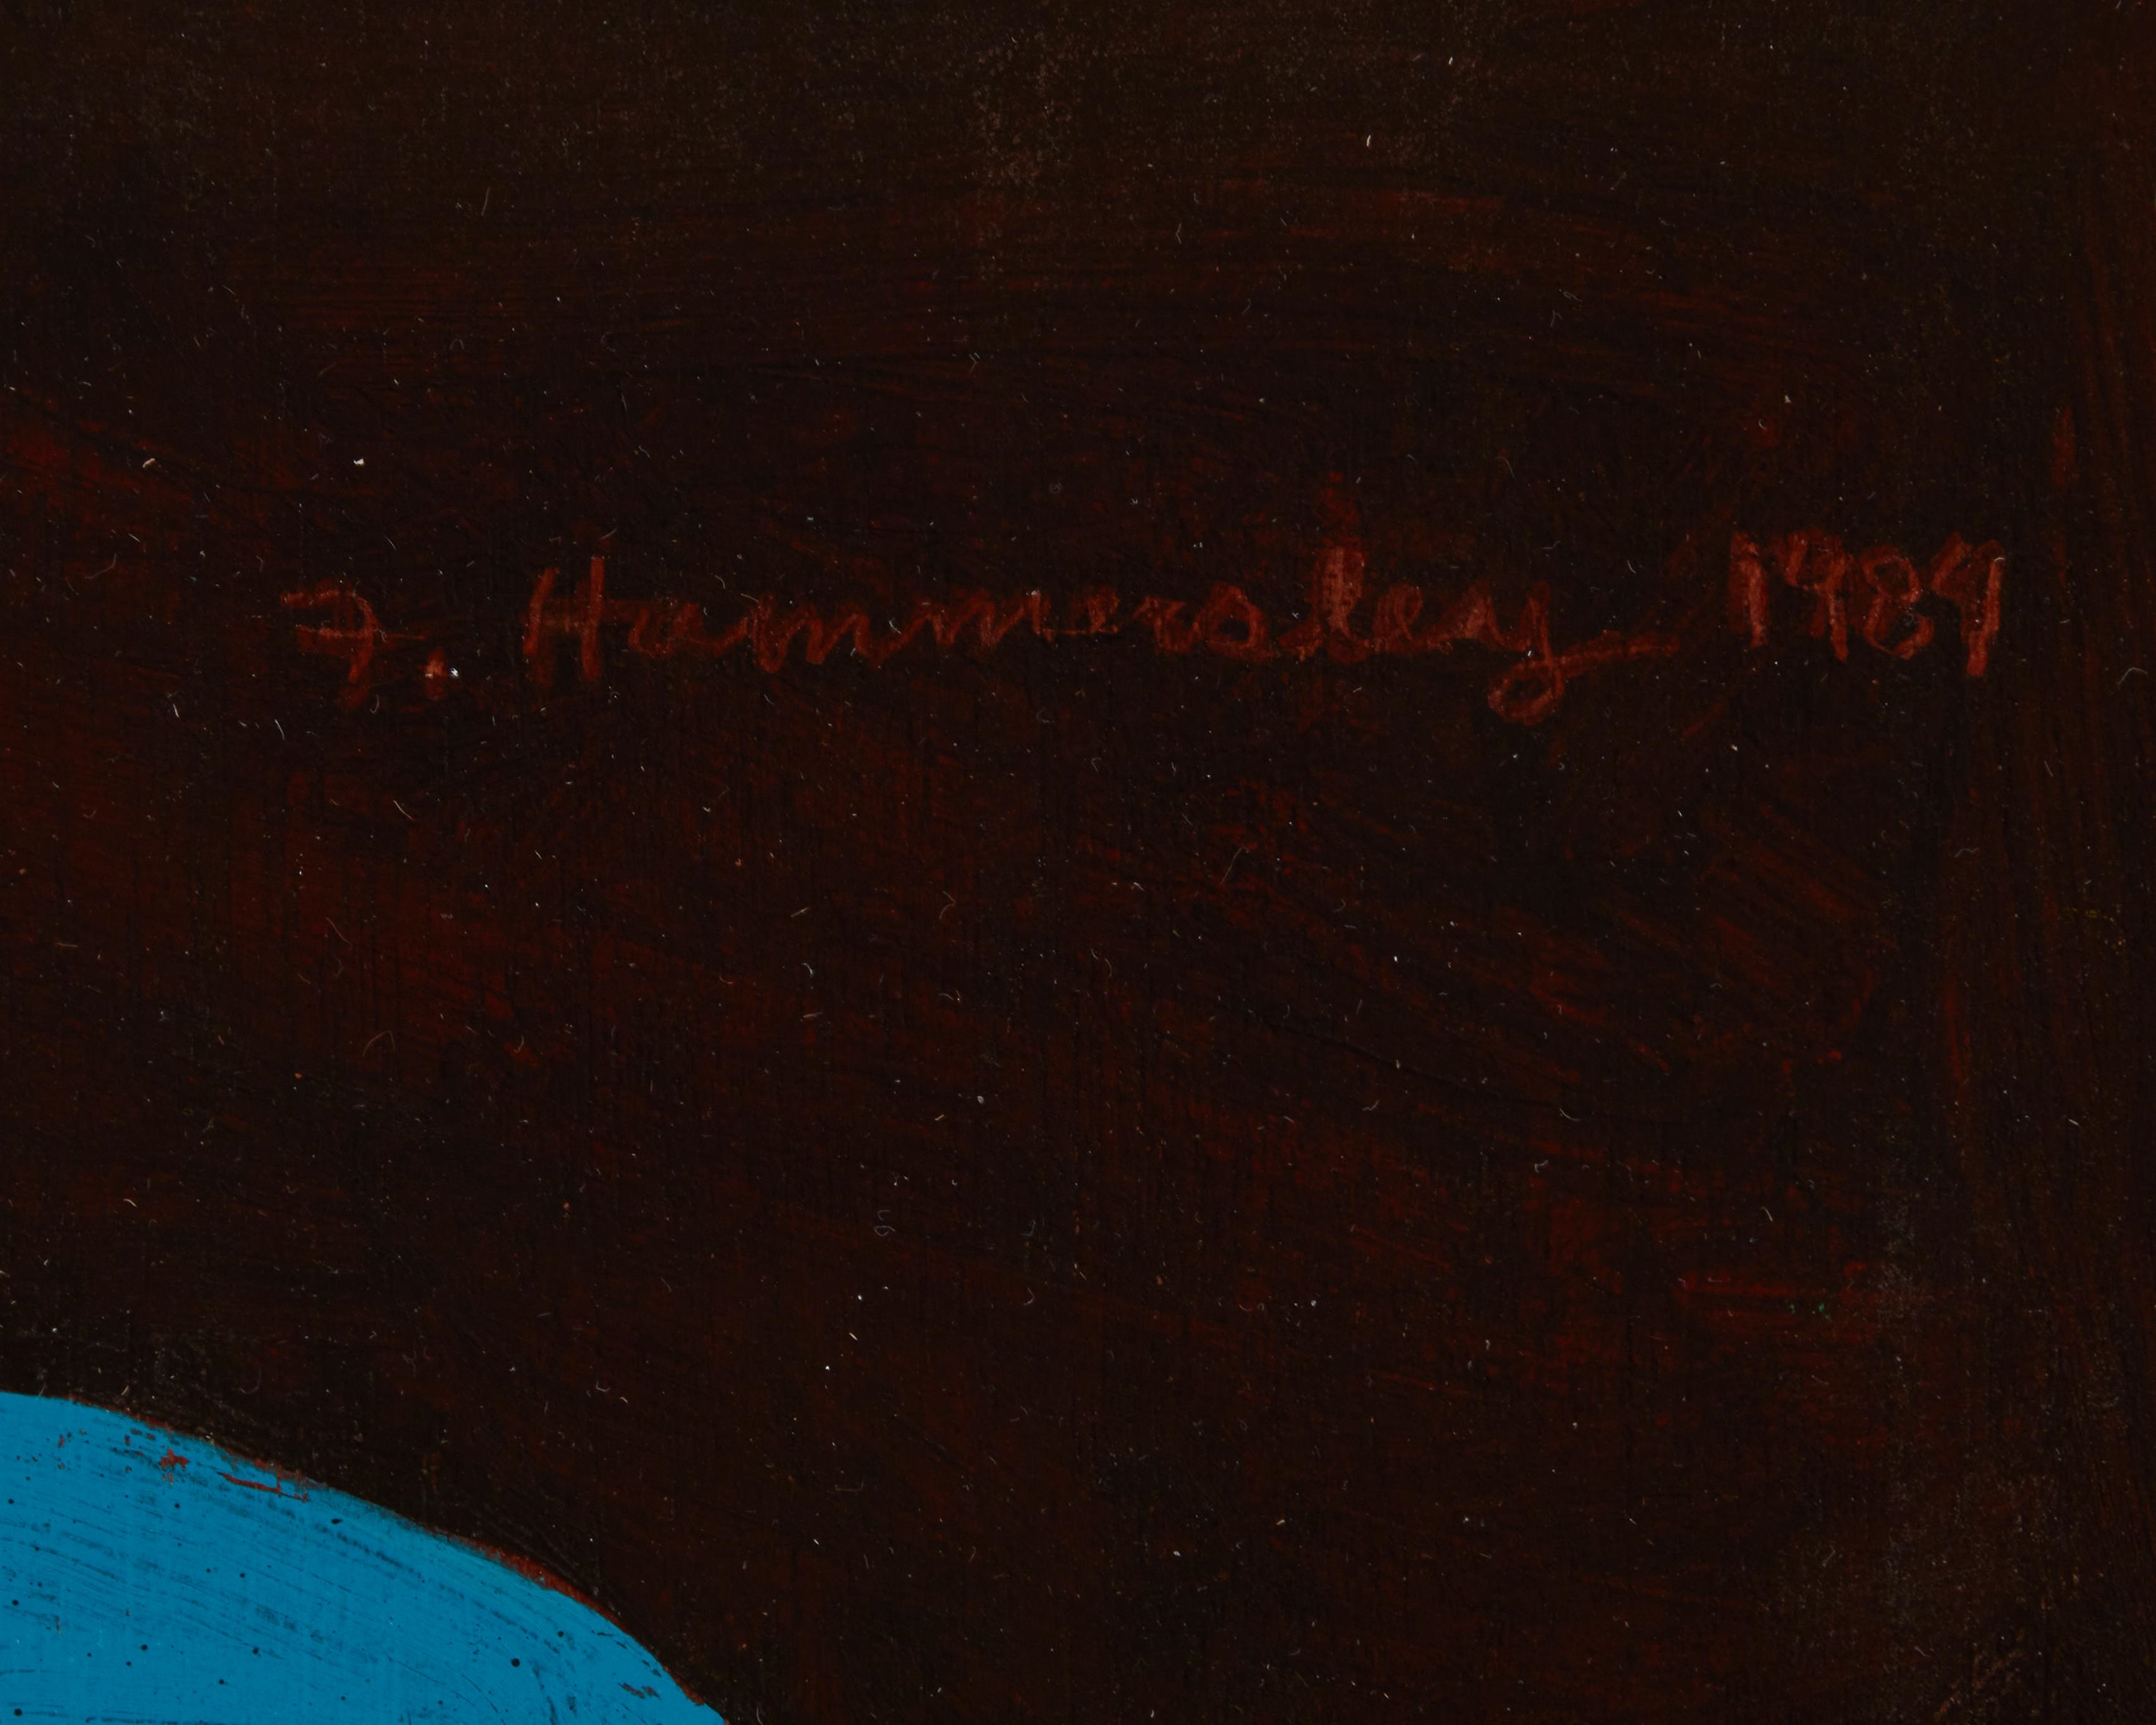 F. Hammersley 1989